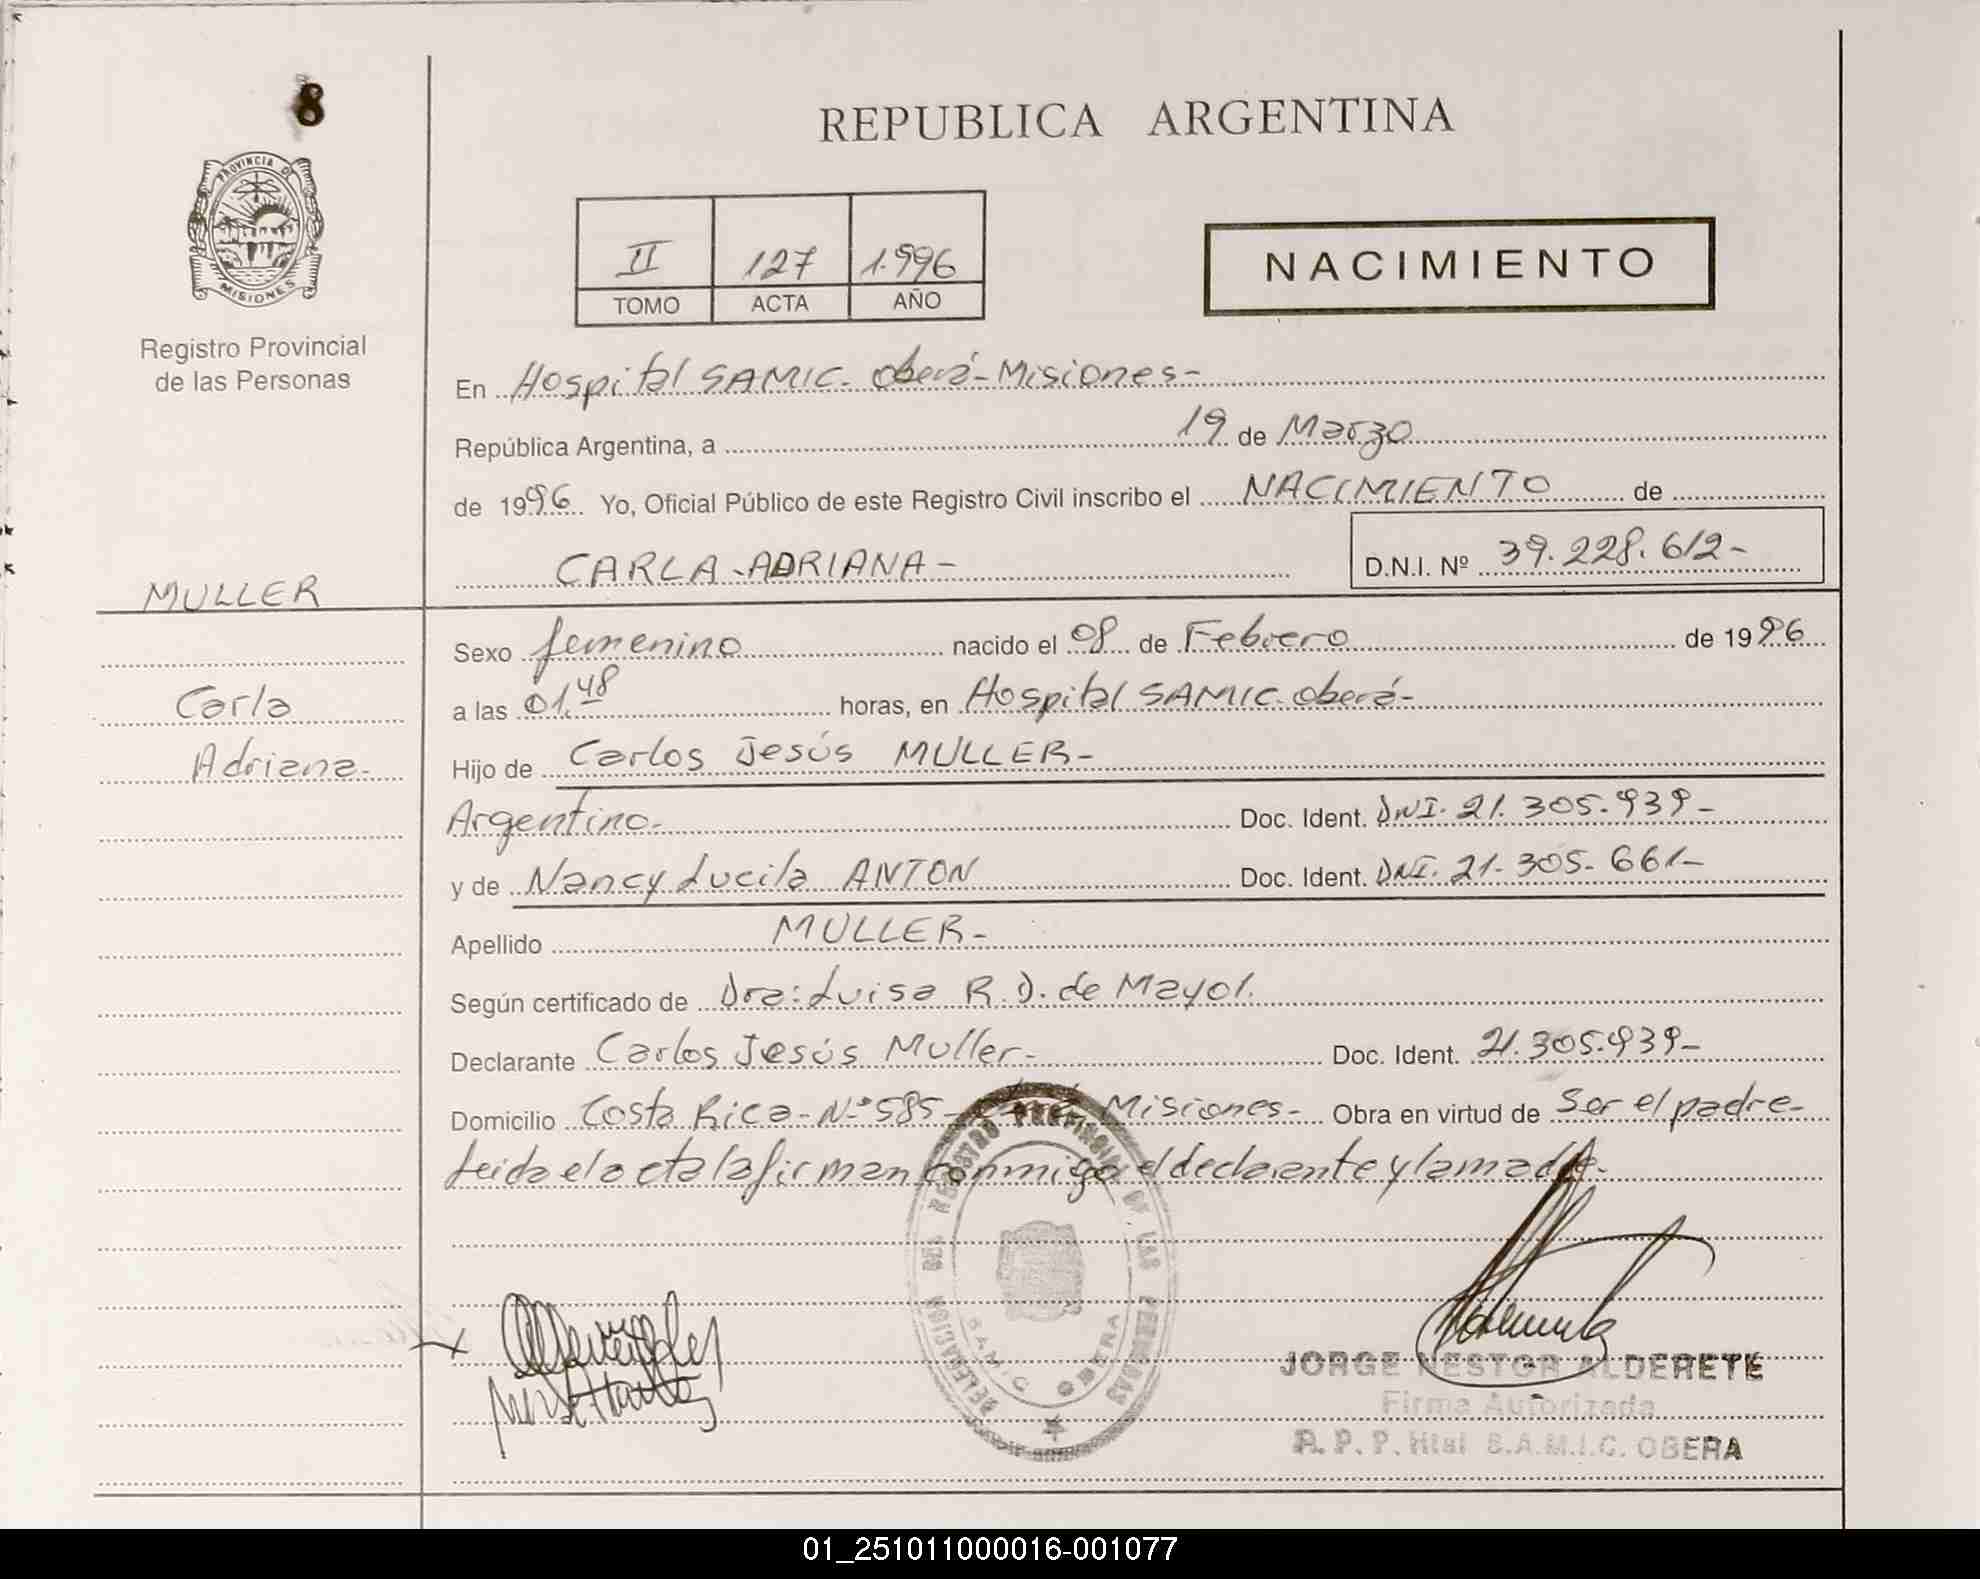 8
REPUBLICA ARGENTINA
PROVINCIA DE
MISIONES
Registro Provincial
de las Personas
II 127 1.996
TOMO ACTA AÑO
NACIMIENTO
En Hospital SAMIC. Oberá-Misiones-
República Argentina, a 19 de Marzo
de 1996 Yo, Oficial Público de este Registro Civil inscribo el NACIMIENTO de
CARLA-ADRIANA-
D.N.I. Nº 39.228.612-
MULLER
Carla
Adriana-
Sexo femenino nacido el 08 de Febrero de 1996
a las 01.48 horas, en Hospital SAMIC. Oberá-
Hijo de Carlos Jesús MULLER-
Argentino- Doc. Ident. DNI. 21.305.939-
y de Nancy Lucila ANTON Doc. Ident. DNI. 21.305.661-
Apellido MULLER-
Según certificado de Dra: Luisa R.D. de Mayol.
Declarante Carlos Jesús Muller- Doc. Ident. 21.305.939-
Domicilio Costa Rica-Nº585-Oberá Misiones- Obra en virtud de Ser el padre-
Leida el acta la firman conmigo el declarante y la madre-
DELEGACION DEL REGISTRO PROVINCIAL DE LAS PERSONAS
SAMIC OBERA
JORGE NESTOR ALDERETE
Firma Autorizada
R.P.P. Htal S.A.M.I.C. OBERA
01_251011000016-001077